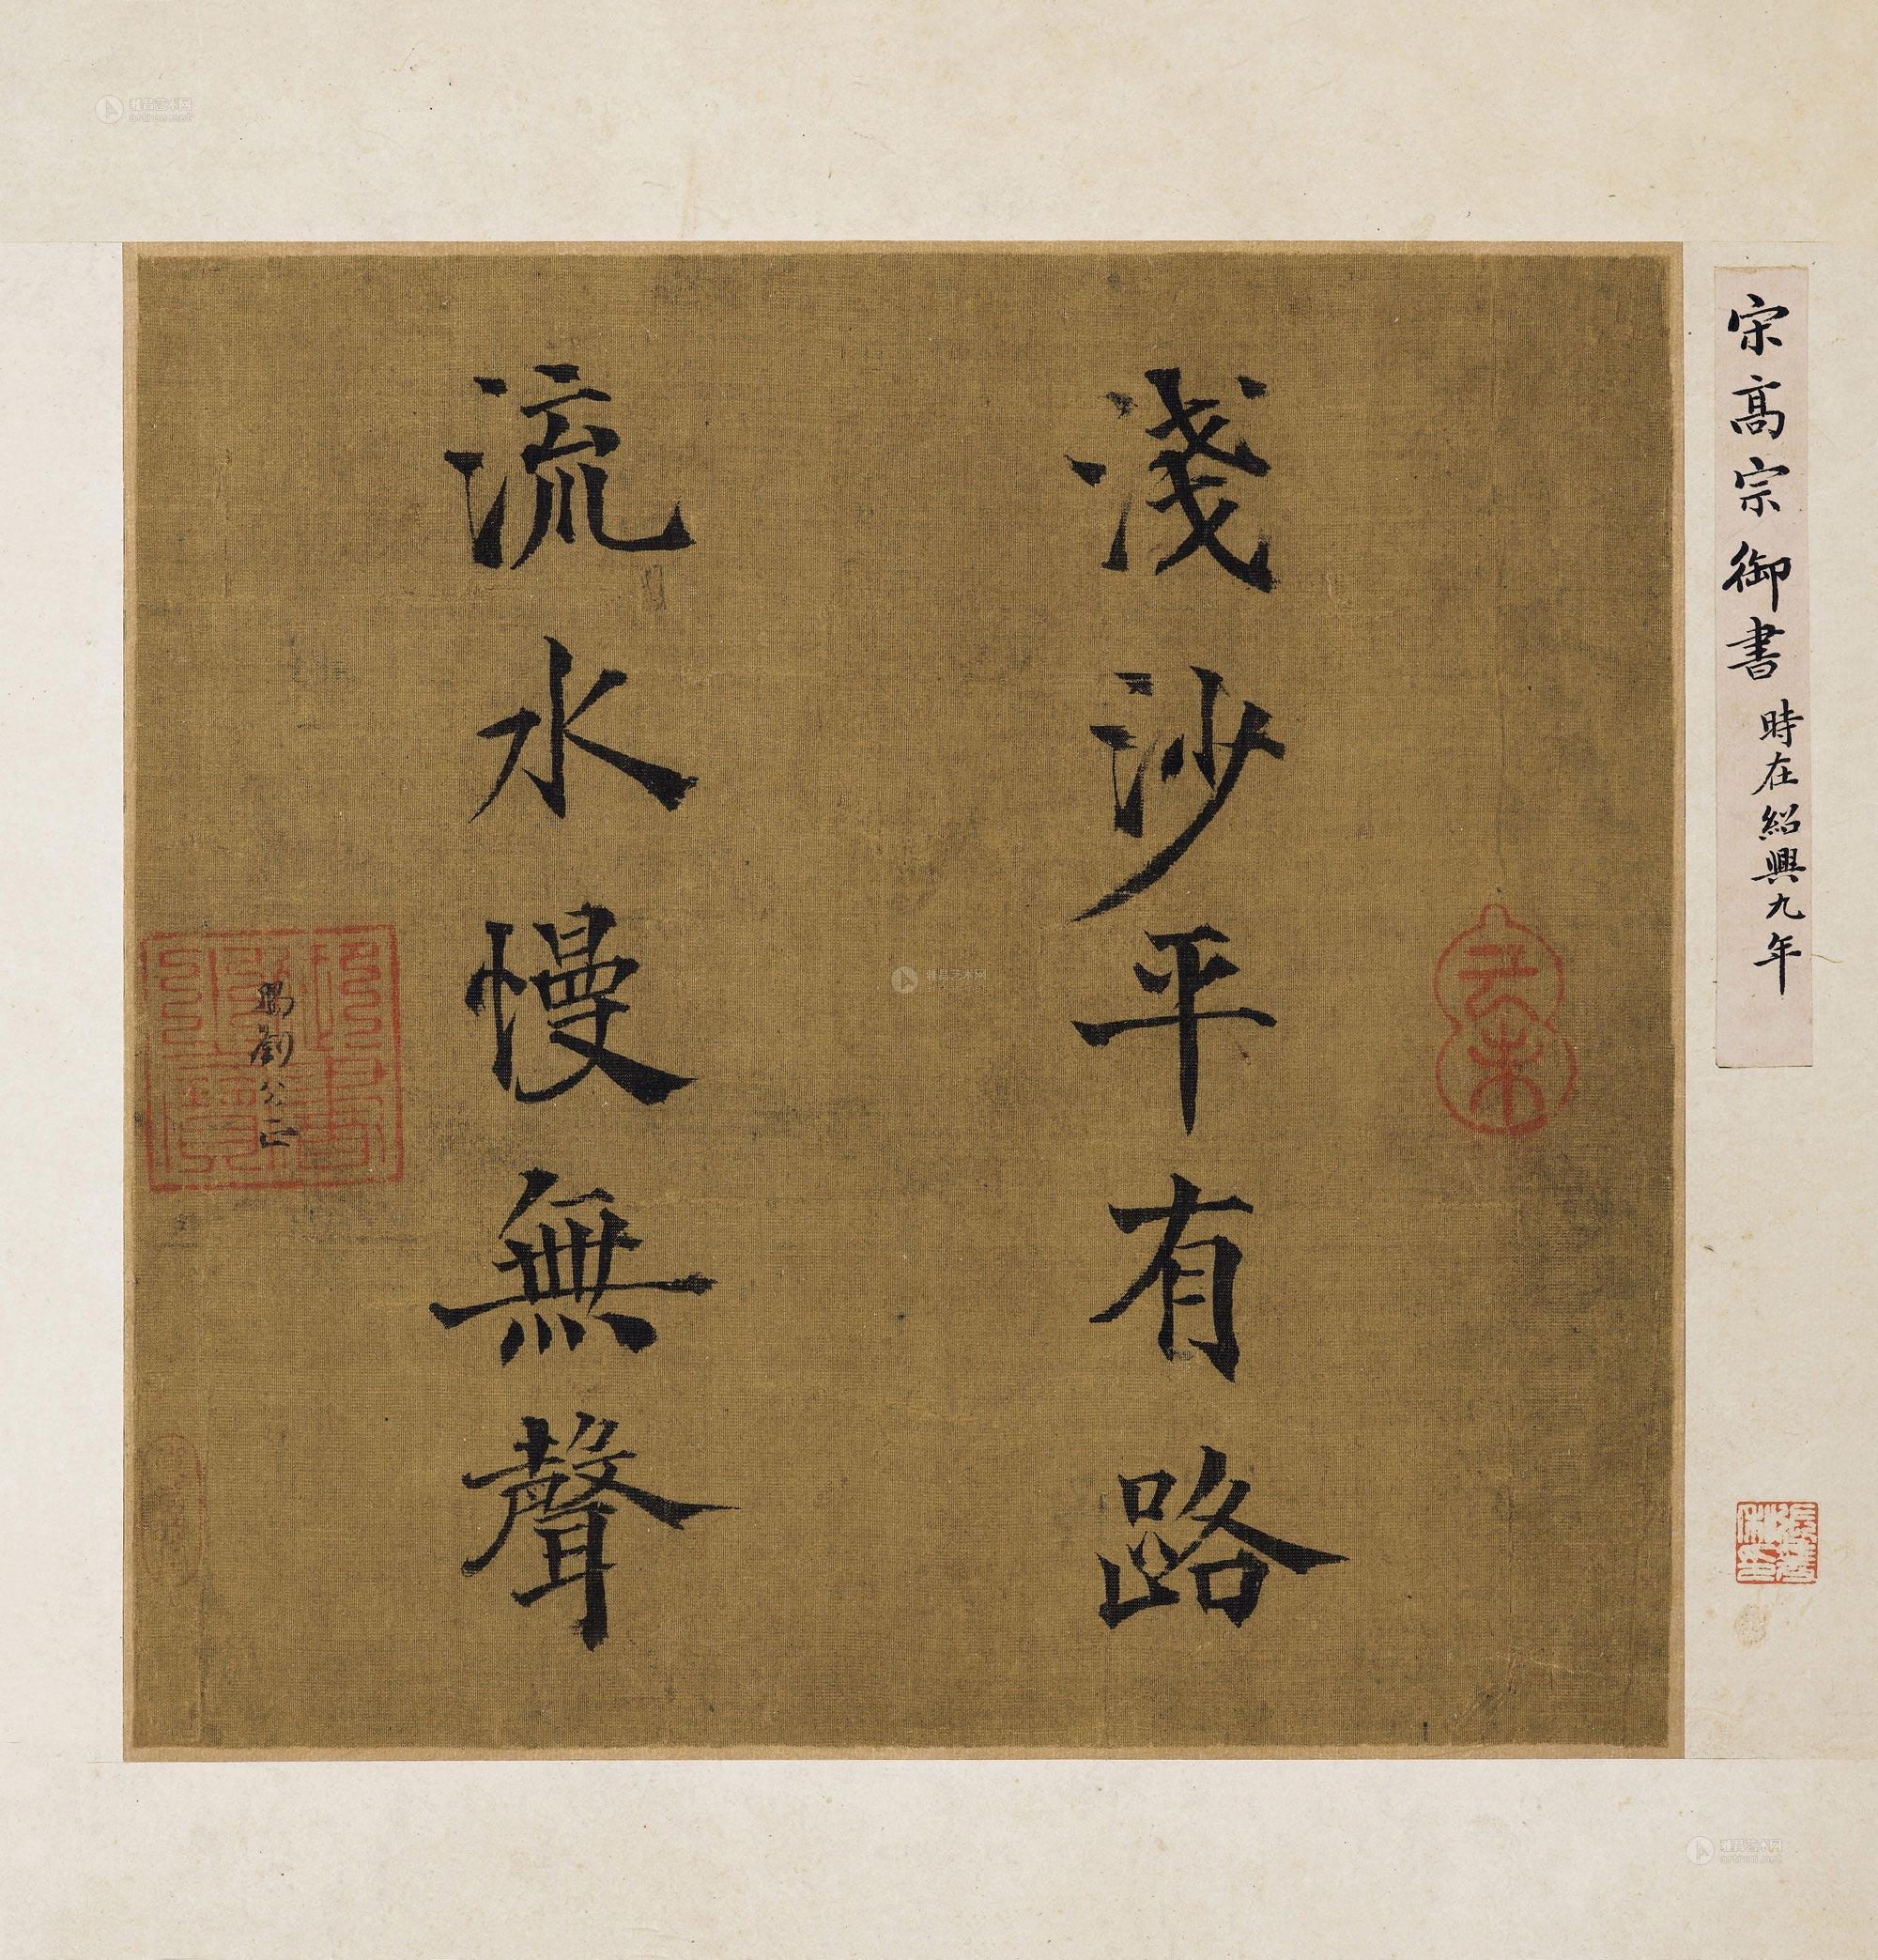 宋高宗御書 時在紹興九年
淺沙平有路
流水慢無聲
賜劉公正
雅昌艺术网
artron.net